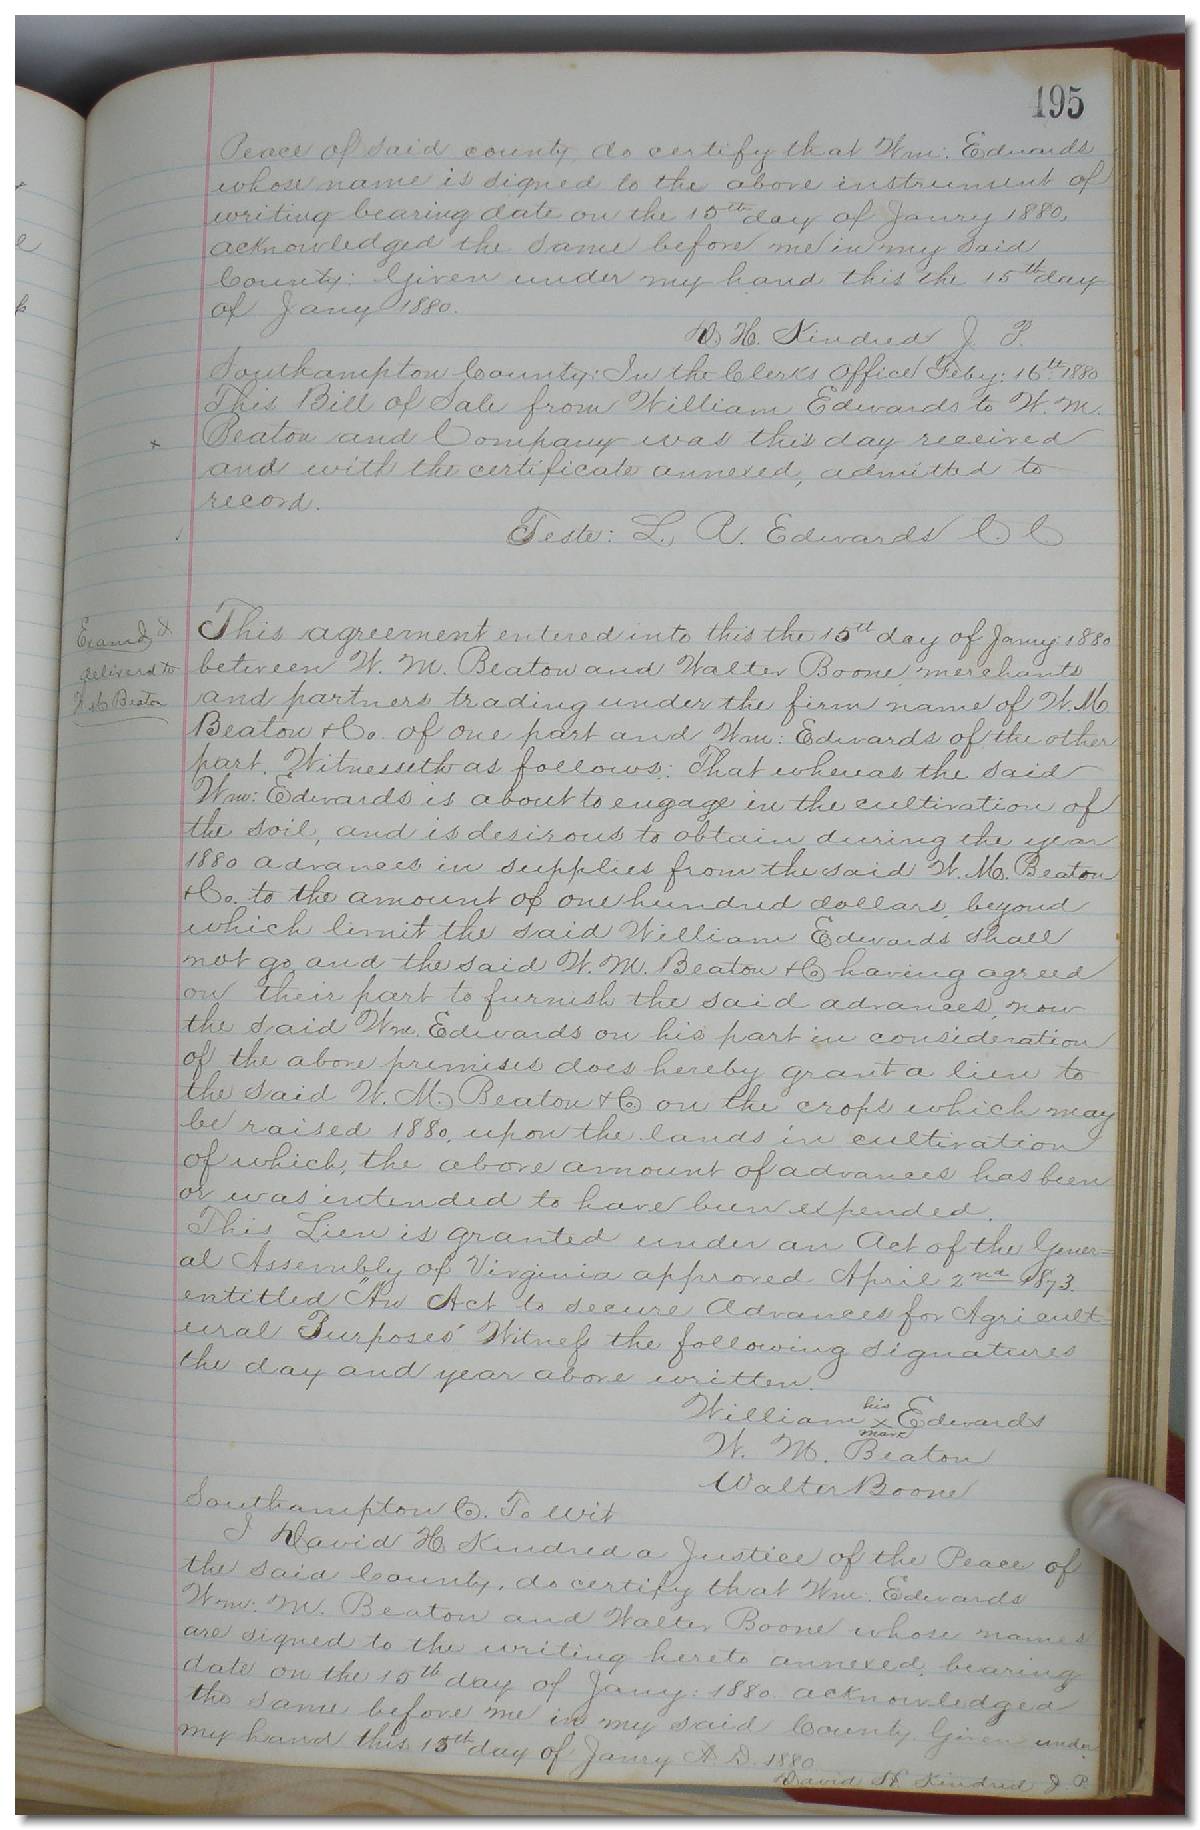 195
Peace of said county, do certify that Wm: Edwards
whose name is signed to the above instrument of
writing bearing date on the 15th day of Janry 1880,
acknowledged the same before me in my said
County: Given under my hand this the 15th day
of Jany 1880.
D. H. Kindred J. P.
Southampton County: In the Clerks Office Feby: 16th 1880
This Bill of Sale from William Edwards to W. M.
Beaton and Company was this day received
and with the certificate annexed, admitted to
record.
Teste: L. R. Edwards C C
Examd &
delivered to
W M Beaton
This agreement entered into this the 15th day of Jany: 1880
between W. M. Beaton and Walter Boone merchants
and partners trading under the firm name of W. M
Beaton & Co. of one part and Wm: Edwards of the other
part. Witnesseth as follows: That whereas the said
Wm: Edwards is about to engage in the cultivation of
the soil, and is desirous to obtain during the year
1880 advances in supplies from the said W. M. Beaton
& Co. to the amount of one hundred dollars, beyond
which limit the said William Edwards shall
not go and the said W. M. Beaton & Co having agreed
on their part to furnish the said advances, now
the said Wm. Edwards on his part in consideration
of the above premises does hereby grant a lien to
the said W. M. Beaton & Co on the crops which may
be raised 1880, upon the lands in cultivation
of which, the above amount of advances has been
or was intended to have been expended.
This Lien is granted under an Act of the Gener=
al Assembly of Virginia approved April 2nd 1873.
entitled "An Act to secure Advances for Agricult=
ural Purposes" Witness the following signatures
the day and year above written.
his
William x Edwards
mark
W. M. Beaton
Walter Boone
Southampton Co. To wit
I David H. Kindred a Justice of the Peace of
the said County, do certify that Wm: Edwards
Wm: M. Beaton and Walter Boone whose names
are signed to the writing hereto annexed, bearing
date on the 15th day of Jany: 1880 acknowledged
the same before me in my said County. Given under
my hand this 15th day of Janry A. D. 1880
David H. Kindred J. P.